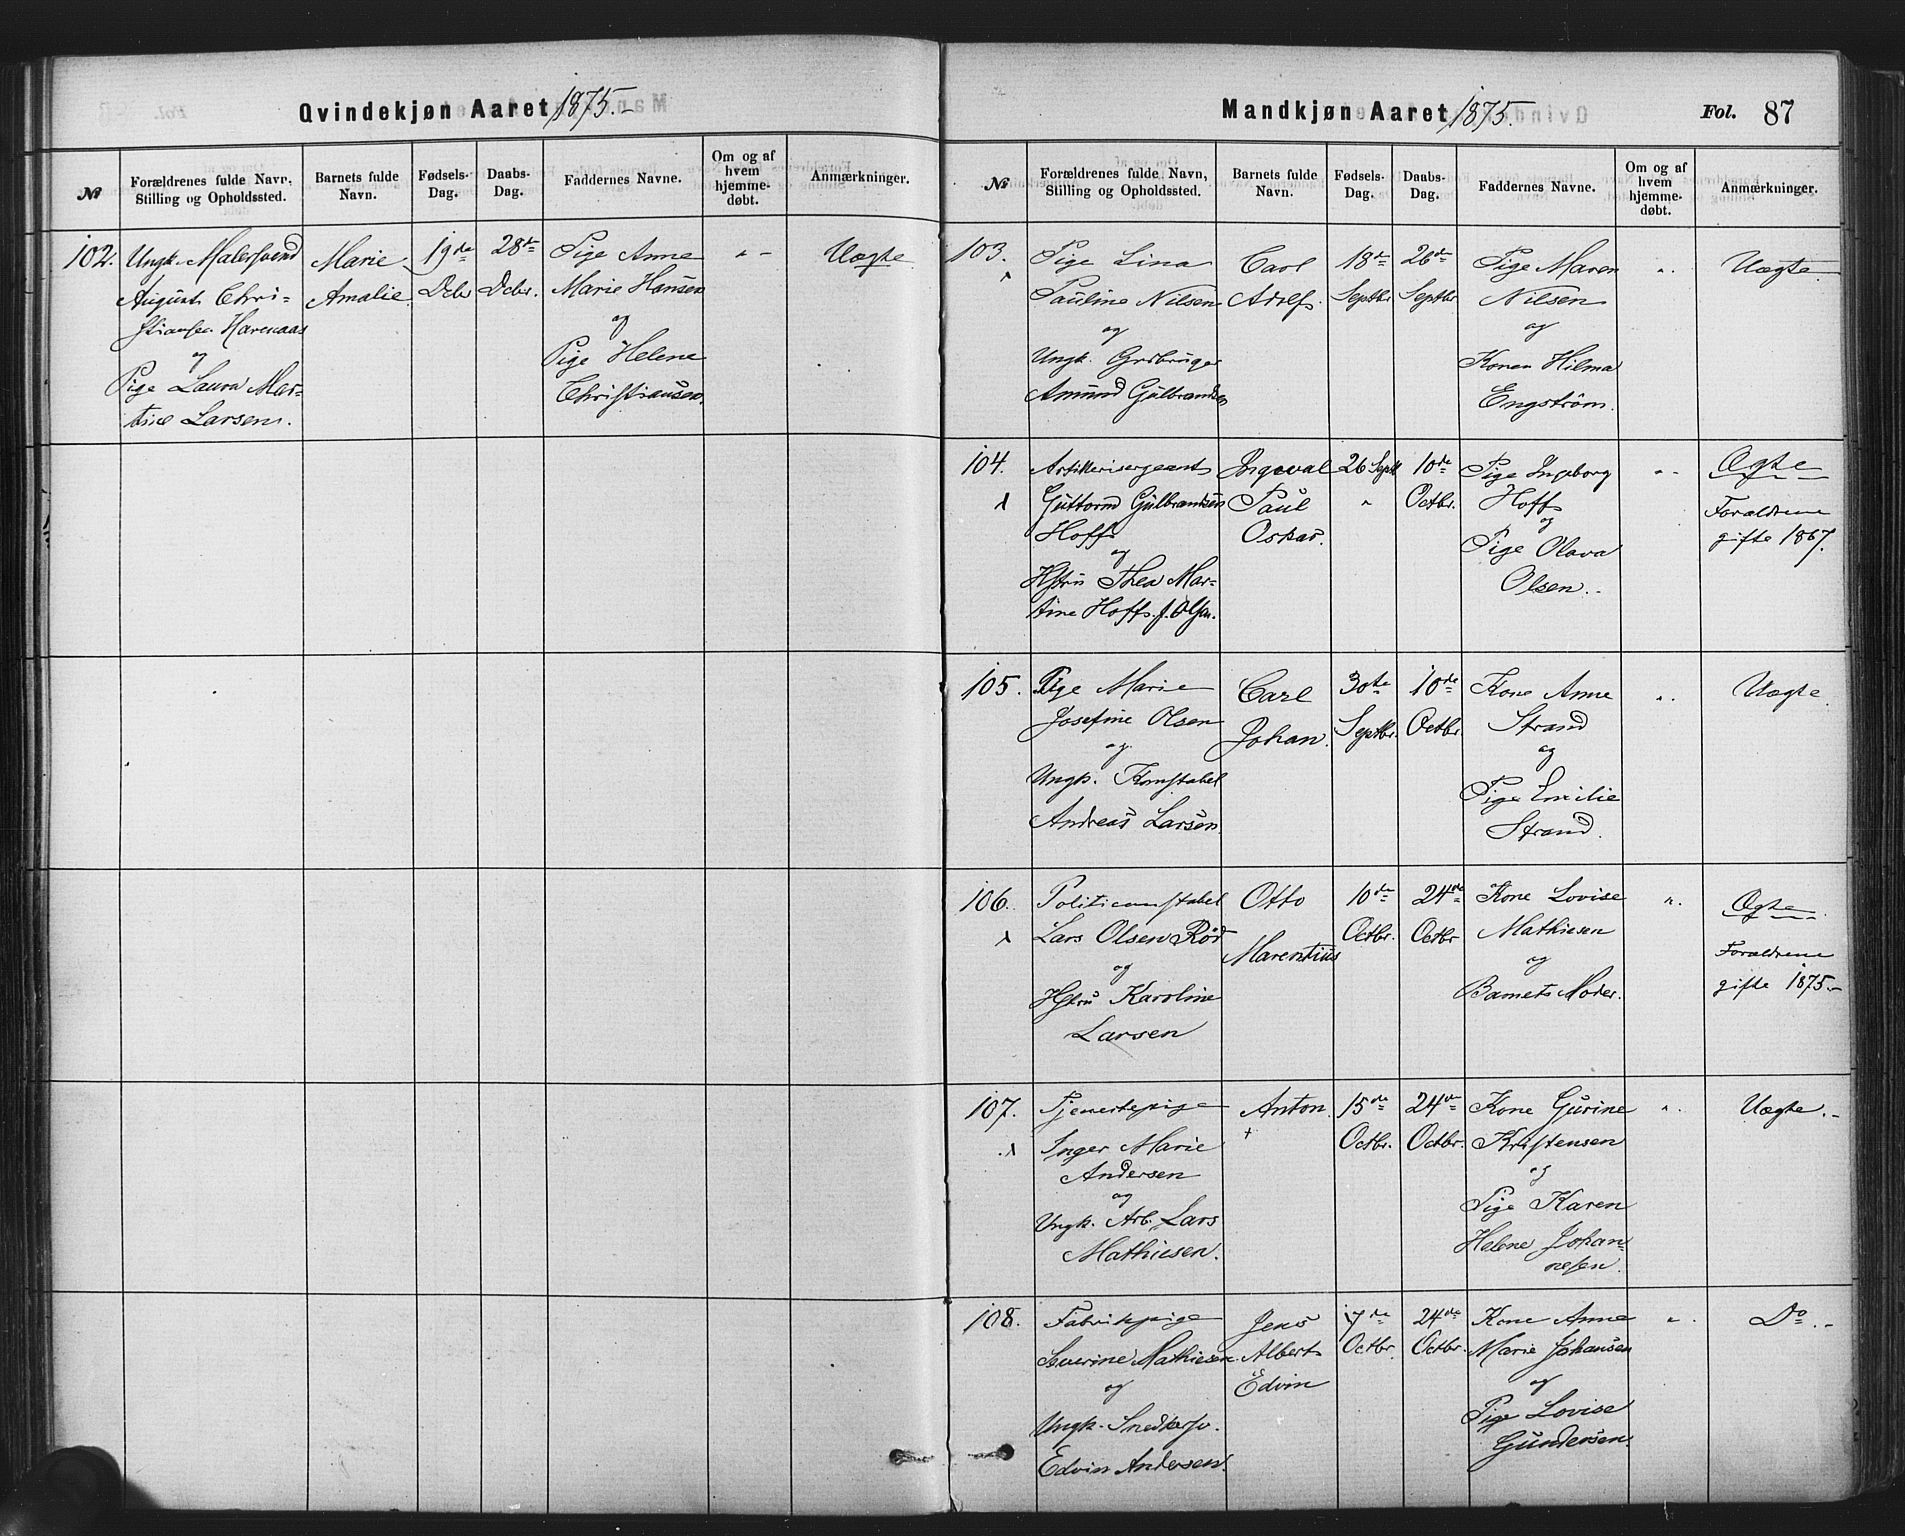 Qvindekjøn Aaret 1875.-
№
Forældrenes fulde Navn,
Stilling og Opholdssted.
Barnets fulde
Navn.
Fødsels-
Dag.
Daabs-
Dag.
Faddernes Navne.
Om og af
hvem
hjemme-
døbt.
Anmærkninger.
102.
Ungk. Malersvend
August Chri-
stiansen
og
Pige Laura Mar-
tine Larsen.
Marie
Amalie.
19de
Dcbr
28de
Dcbr.
Pige Anne
Marie Hansen
og
Pige Helene
Christiansen.
" -
Uægte
Mandkjøn Aaret 1875.
Fol. 87
№
Forældrenes fulde Navn,
Stilling og Opholdssted.
Barnets fulde
Navn.
Fødsels-
Dag.
Daabs-
Dag.
Faddernes Navne.
Om og af
hvem
hjemme-
døbt.
Anmærkninger.
103.
Pige Lina
Pauline Nilsen
og
Ungk. Grdbruger
Amund Gulbrandsen
Carl
Adolf.
18de
Septbr
26de
Septbr.
Pige Maren
Nilsen
og
Konen Hilma
Engström.
".
Uægte
104.
Artillerisergeant
Guttorm Gulbrandsen
Hoff
og
Hstru Thea Mar-
tine Hoff f. Olsen.
Ingeval
Paul
Oskar.
26 Septb
"
10de
Octbr.
Pige Ingeborg
Hoff
og
Pige Olava
Olsen.
".
Ægte
Forældrene
gifte 1867.
105.
Pige Marie
Josefine Olsen
og
Ungk. Konstabel
Andreas Larsen.
Carl
Johan.
30te
Septbr.
10de
Octbr.
Kone Anne
Strand
og
Pige Emilie
Strand.
".
Uægte
106.
Politiconstabel
Lars Olsen Rød
og
Hstru Karoline
Larsen
Otto
Marentius
10de
Octbr.
24de
Octbr
Kone Lovise
Mathiesen
og
Barnets Moder.
".
Ægte
Forældrene
gifte 1875.-
107.
Tjenestepige
Inger Marie
Andersen
og
Ungk. Arb. Lars
Mathiesen.
Anton.
+
15de
Octbr.
24de
Octbr.
Kone Gurine
Kristensen
og
Pige Karen
Helene Johan-
nesen.
".
Uægte.-
108.
Fabrikpige
Severine Mathiesen
og
Ungk. Snedkersv.
Edvin Andersen.
Jens
Albert
Edvin
17de
Octbr.
24de
Octbr.
Kone Anne
Marie Johansen
og
Pige Lovise
Gundersen.
".
Do.-